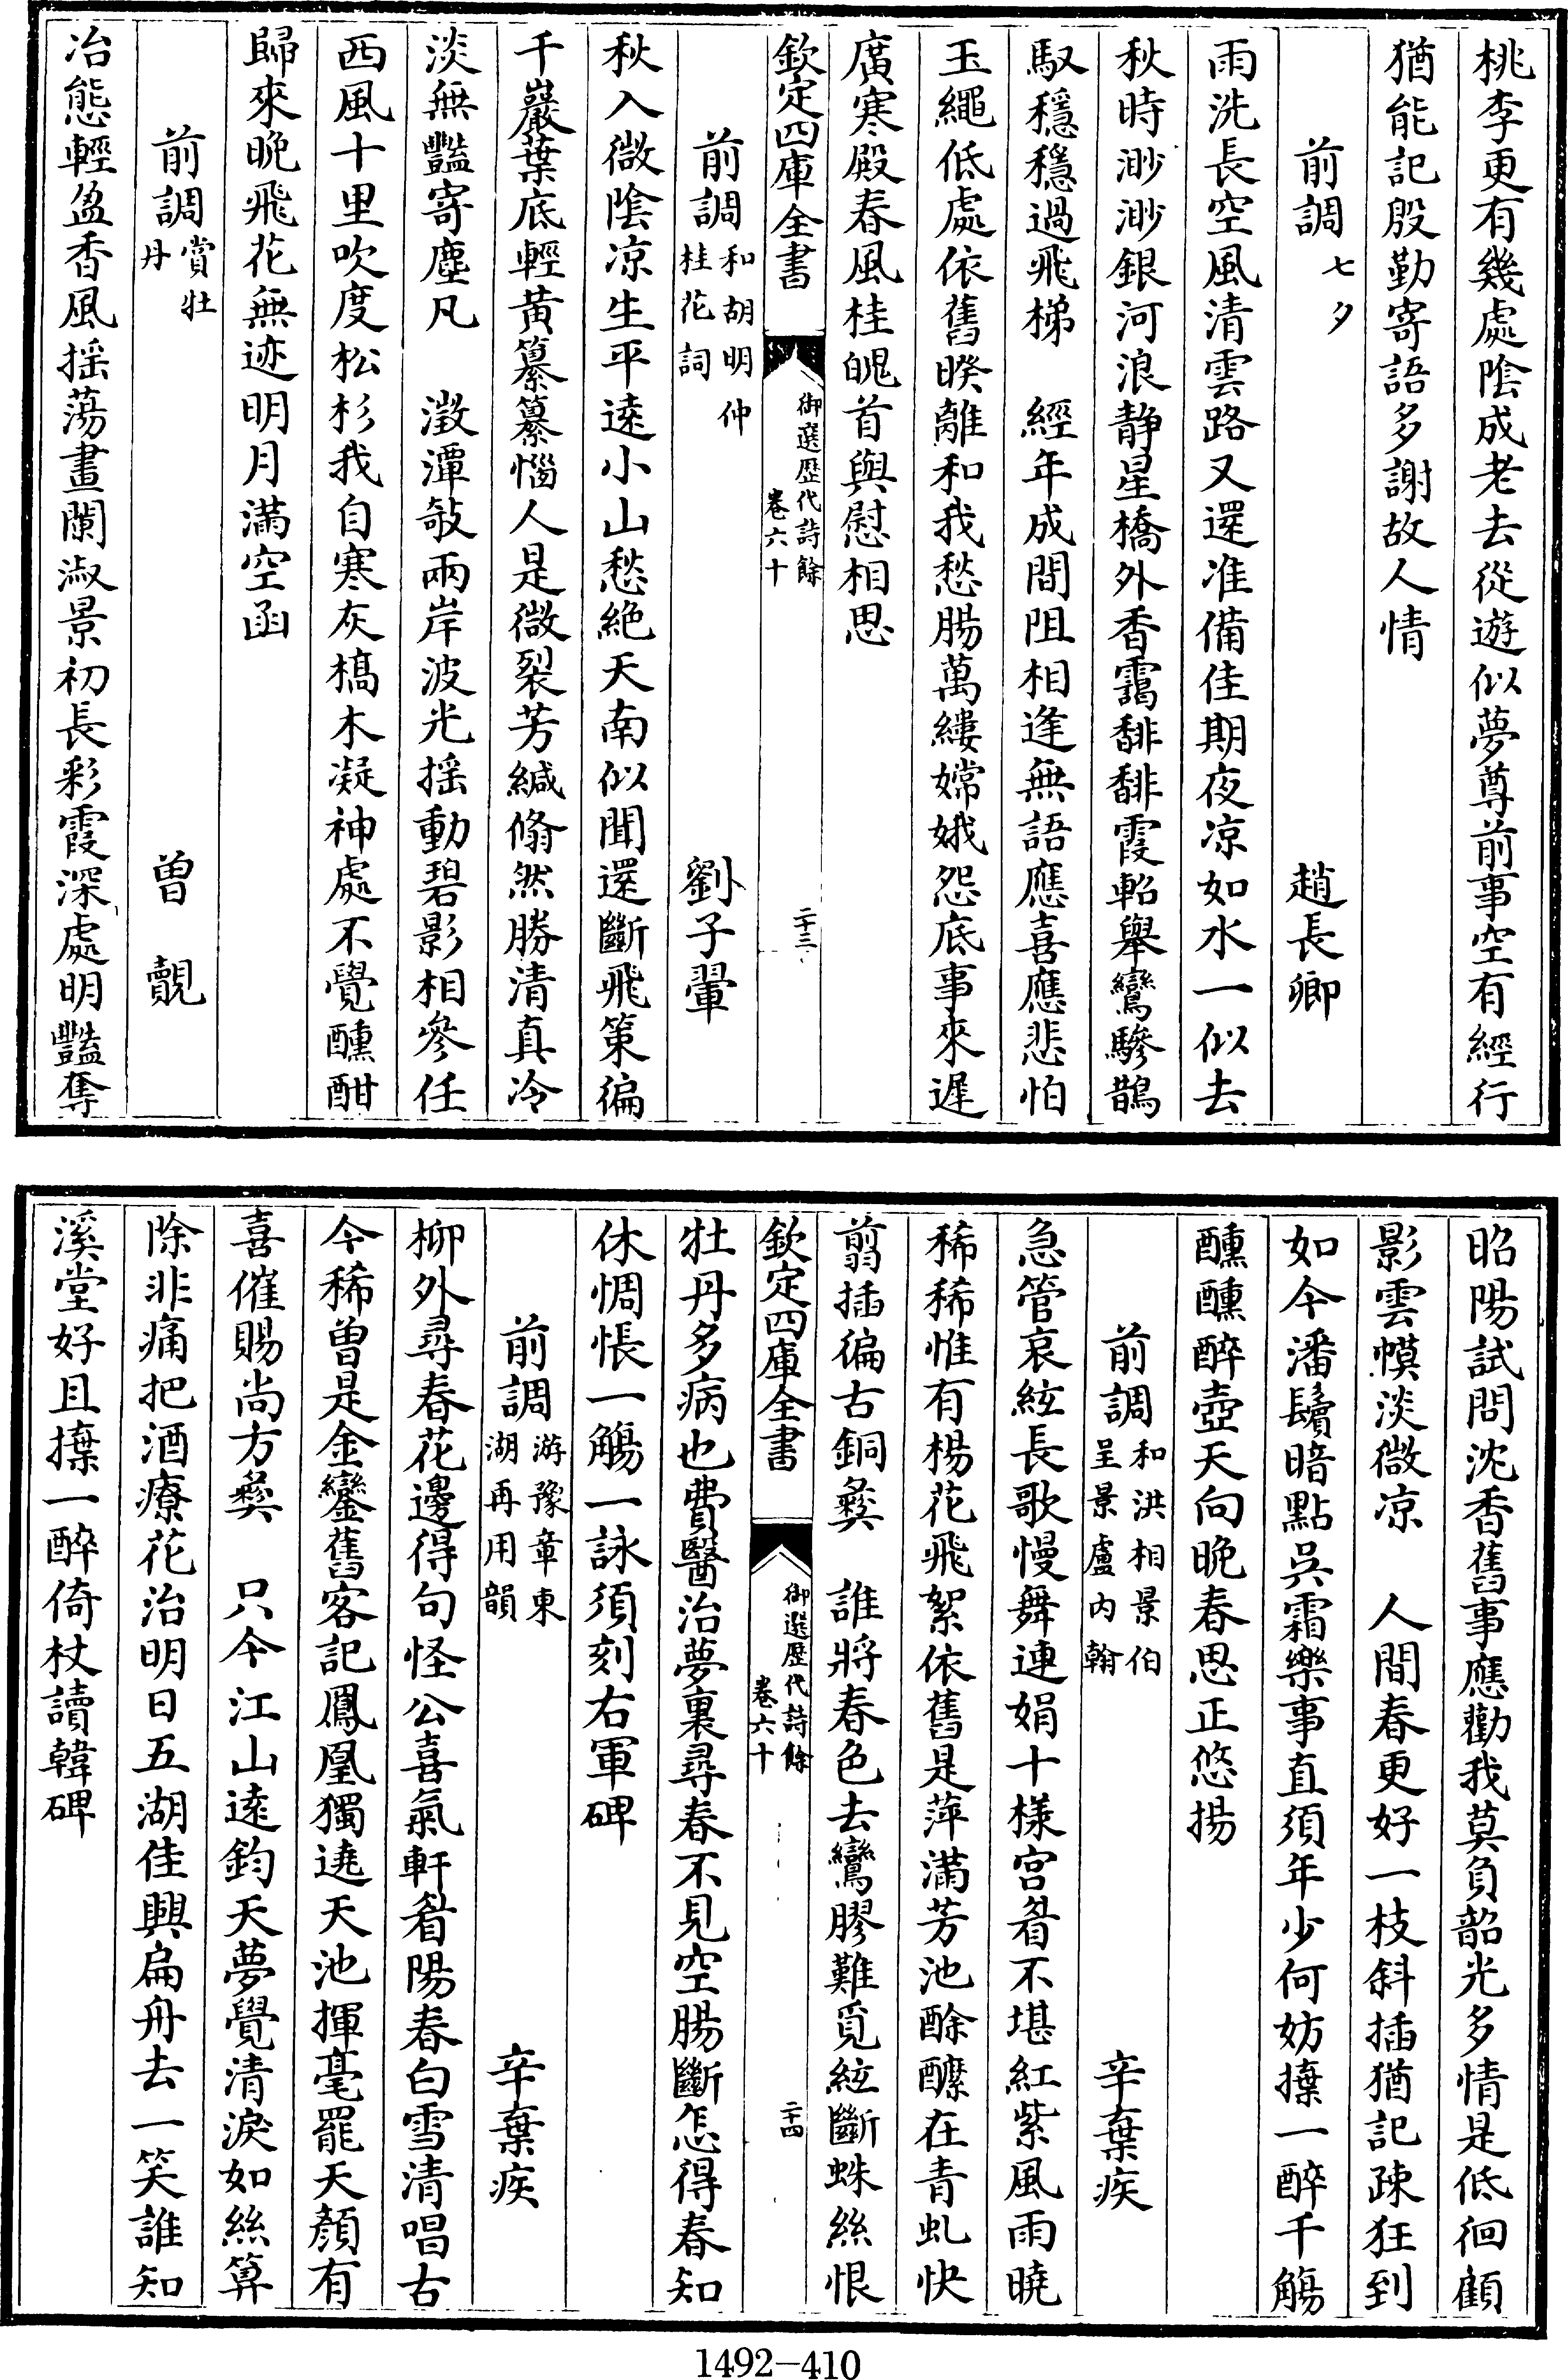 桃李更有幾處陰成老去從遊似夢尊前事空有經行
猶能記殷勤寄語多謝故人情
前調七夕　趙長卿
雨洗長空風清雲路又還准備佳期夜凉如水一似去
秋時渺渺銀河浪静星橋外香靄馡馡霞軺舉鸞驂鵲
馭穩穩過飛梯　經年成間阻相逢無語應喜應悲怕
玉繩低處依舊暌離和我愁腸萬縷嫦娥怨底事來遲
廣寒殿春風桂魄首與慰相思
欽定四庫全書　御選歷代詩餘卷六十　二十三
前調和胡明仲桂花詞　劉子翬
秋入微陰凉生平逺小山愁絶天南似聞還斷飛策徧
千巖葉底輕黄纂纂惱人是微裂芳緘翛然勝清真冷
淡無豔寄塵凡　澂潭攲兩岸波光揺動碧影相參任
西風十里吹度松杉我自寒灰槁木凝神處不覺醺酣
歸來晩飛花無迹明月滿空函
前調賞牡丹　曾覿
冶態輕盈香風揺蕩畫闌淑景初長彩霞深處明豔奪
昭陽試問沈香舊事應勸我莫負韶光多情是低徊顧
影雲幙淡微凉　人間春更好一枝斜插猶記疎狂到
如今潘鬢暗點吳霜樂事直須年少何妨㨿一醉千觴
醺醺醉壺天向晩春思正悠揚
前調和洪相景伯呈景盧内翰　辛棄疾
急管哀絃長歌慢舞連娟十様宫眉不堪紅紫風雨曉
稀稀惟有楊花飛絮依舊是萍滿芳池酴醾在青虬快
翦插徧古銅彝　誰將春色去鸞膠難覓絃斷蛛絲恨
欽定四庫全書　御選歷代詩餘卷六十　二十四
牡丹多病也費醫治夢裏尋春不見空腸斷怎得春知
休惆悵一觴一詠須刻右軍碑
前調游豫章東湖再用韻　辛棄疾
柳外尋春花邊得句怪公喜氣軒眉陽春白雪清唱古
今稀曾是金鑾舊客記鳳凰獨遶天池揮毫罷天顔有
喜催賜尚方彝　只今江山逺鈞天夢覺清淚如絲算
除非痛把酒療花治明日五湖佳興扁舟去一笑誰知
溪堂好且㨿一醉倚杖讀韓碑
1492-410